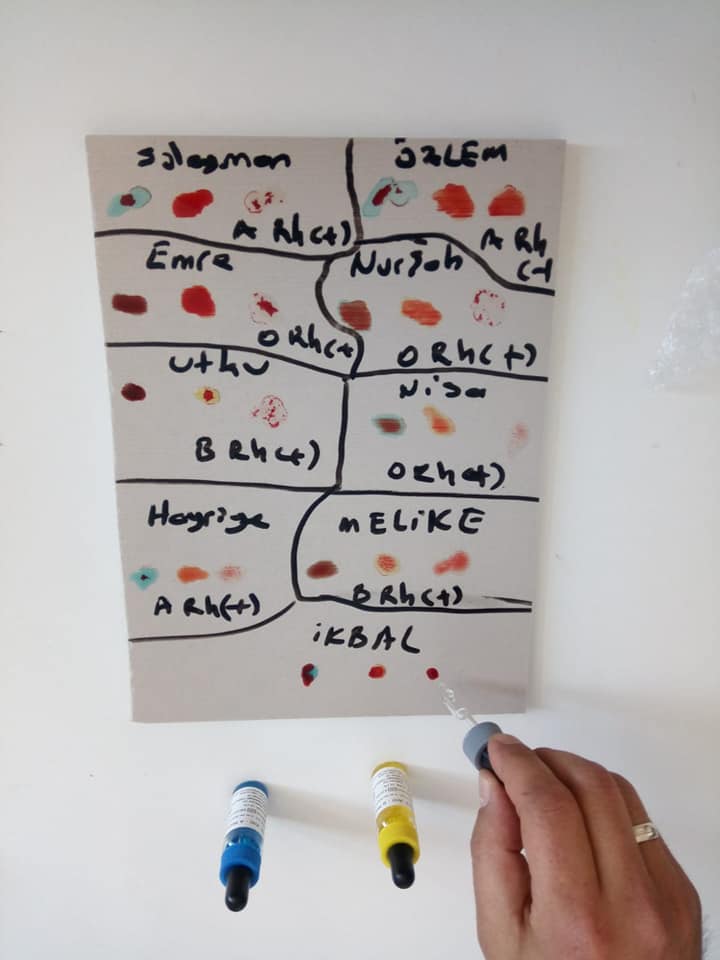 Süleyman
A Rh(+)
ÖZLEM
A Rh
(-)
Emre
O Rh(+
Nurşah
O Rh(+)
Utku
B Rh(+)
Nisa
O Rh(+)
Hayriye
A Rh(+)
mELiKE
B Rh(+)
iKBAL